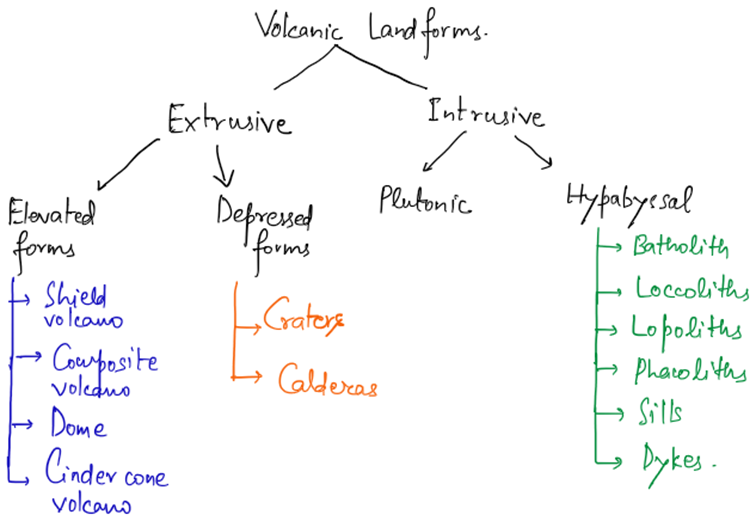 Volcanic Landforms.
Extrusive
Intrusive
Elevated
forms
Depressed
forms
Plutonic
Hypabyssal
Shield
volcano
Composite
volcano
Dome
Cinder cone
volcano
Craters
Calderas
Batholith
Loccoliths
Lopoliths
Phacoliths
Sills
Dykes.